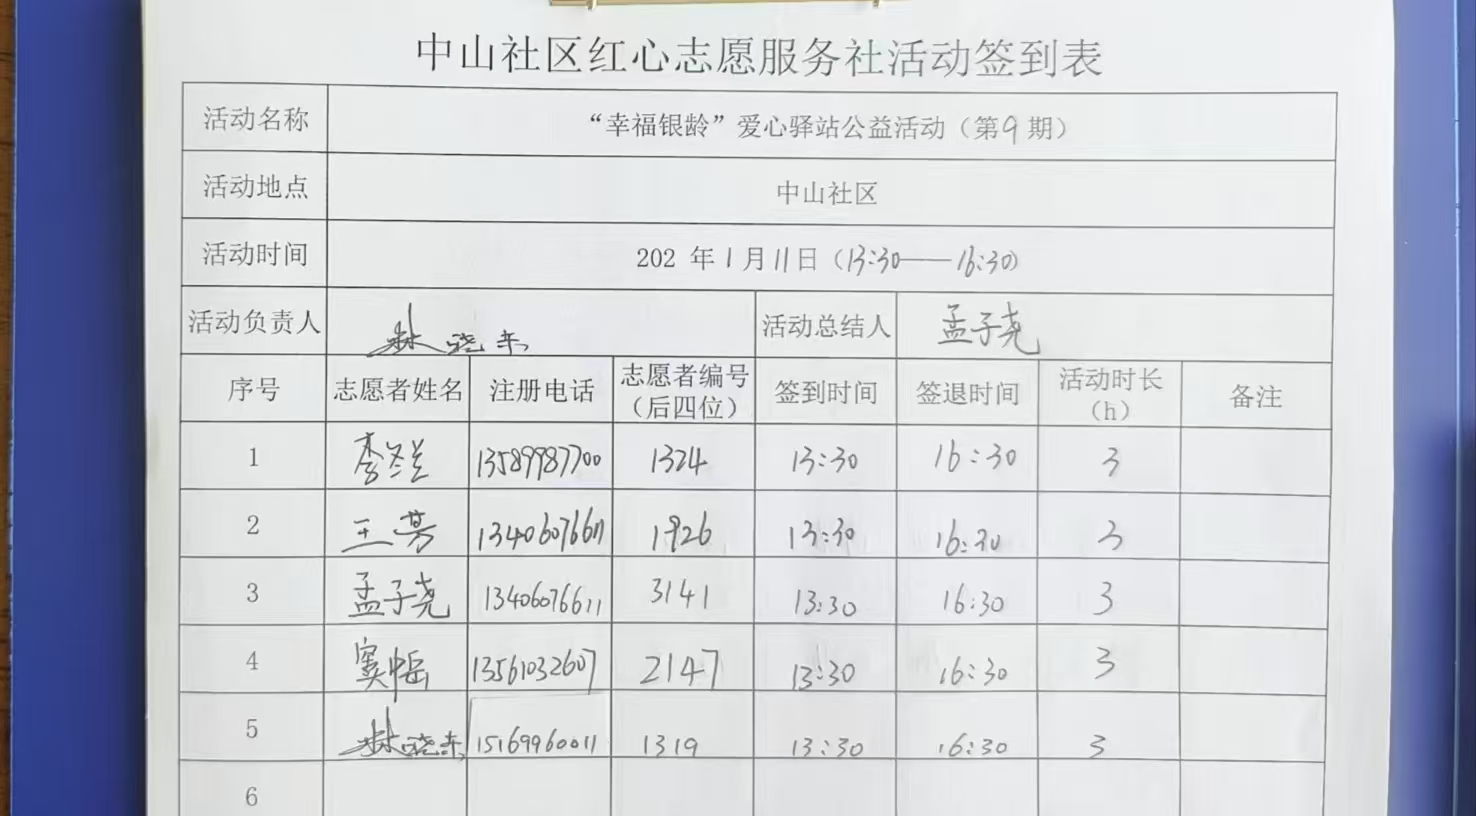 中山社区红心志愿服务社活动签到表
活动名称 “幸福银龄”爱心驿站公益活动（第9期）
活动地点 中山社区
活动时间 202 年1月11日（13:30——16:30）
活动负责人 林晓东 活动总结人 孟子尧
序号 志愿者姓名 注册电话 志愿者编号（后四位） 签到时间 签退时间 活动时长（h） 备注
1 李冬兰 13589987700 1324 13:30 16:30 3
2 王芳 13406076611 1926 13:30 16:30 3
3 孟子尧 13406076611 3141 13:30 16:30 3
4 窦 13561032607 2147 13:30 16:30 3
5 林晓东 15169960011 1319 13:30 16:30 3
6